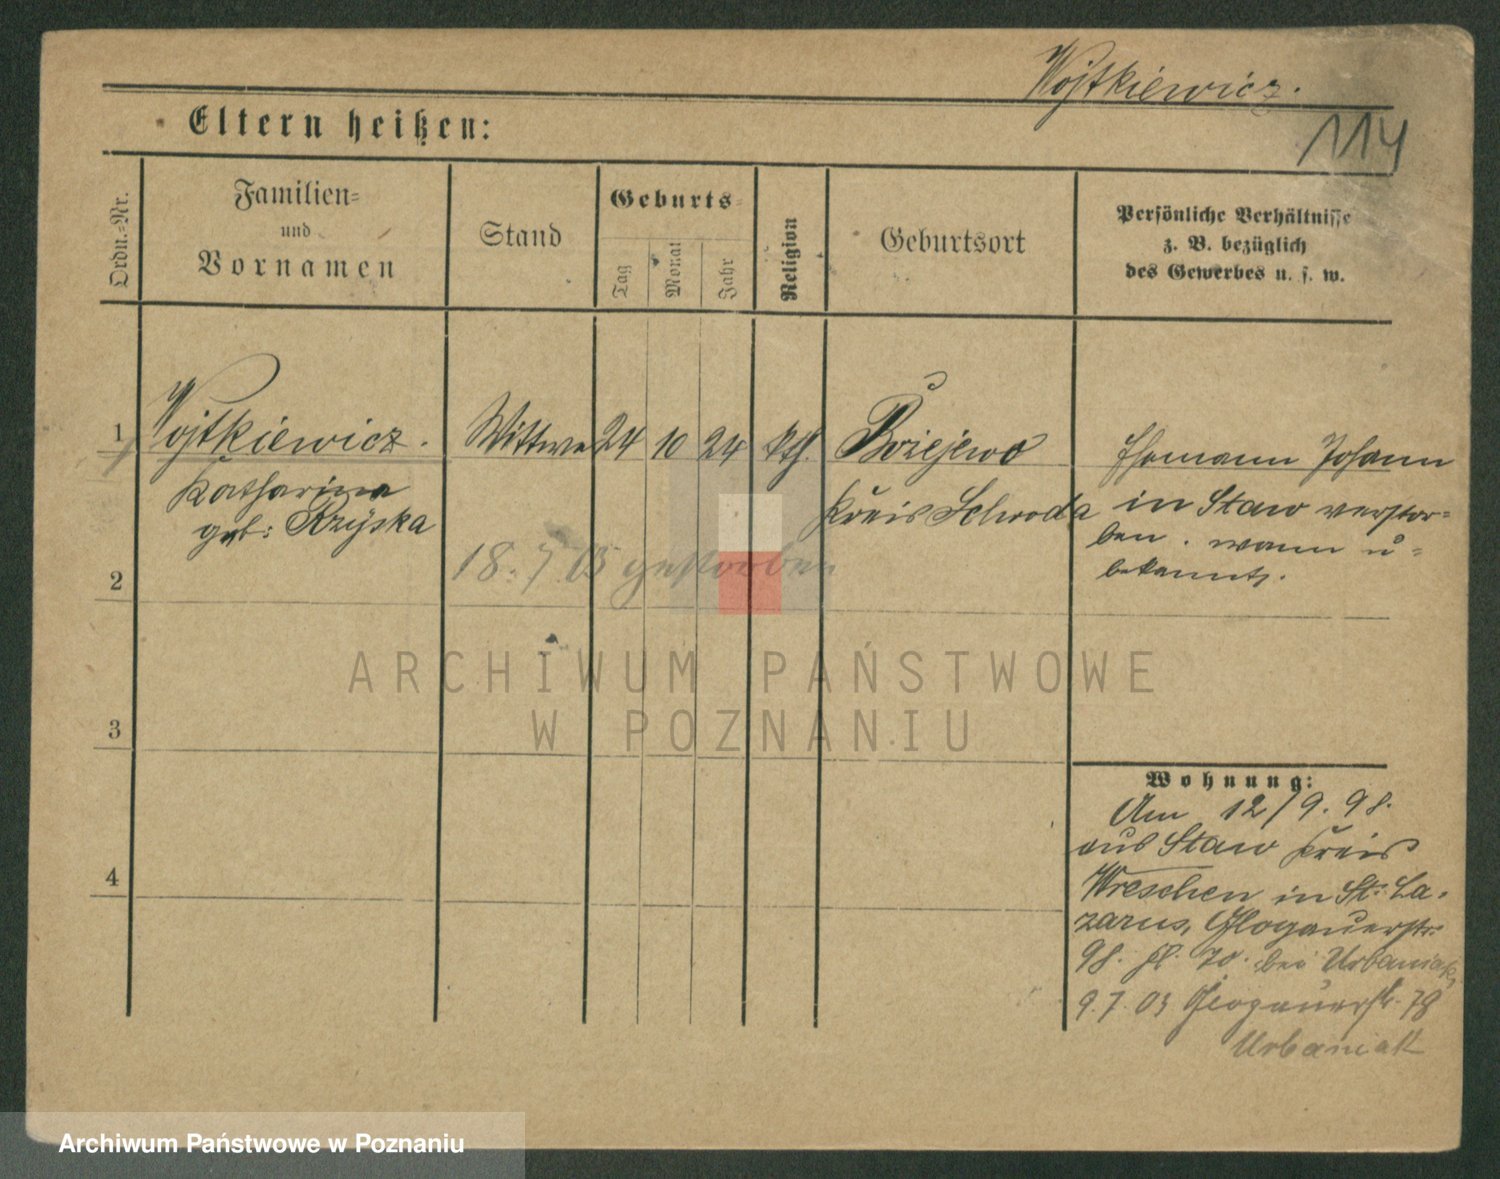 Wojtkiewicz.
114
Eltern heißen:
Ordn.=Nr.
Familien=
und
Vornamen
Stand
Geburts=
Tag
Monat
Jahr
Religion
Geburtsort
Persönliche Verhältnisse
z. B. bezüglich
des Gewerbes u. s. w.
1
Wojtkiewicz.
Katharina
geb: Rzyska
Wittwe
24
10
24
kth.
Bziejewo
Kreis Schroda
Ehemann Johann
in Staw verstor=
ben. wann u=
bekannt.
2
18. 7. 05 gestorben
3
4
Wohnung:
Am 12/9. 98.
aus Staw Kreis
Wreschen in St. La=
zarus, Glogauerstr.
98. bei Urbaniak,
9.7.03 Glogauerstr. 78
Urbaniak
ARCHIWUM PAŃSTWOWE
W POZNANIU
Archiwum Państwowe w Poznaniu